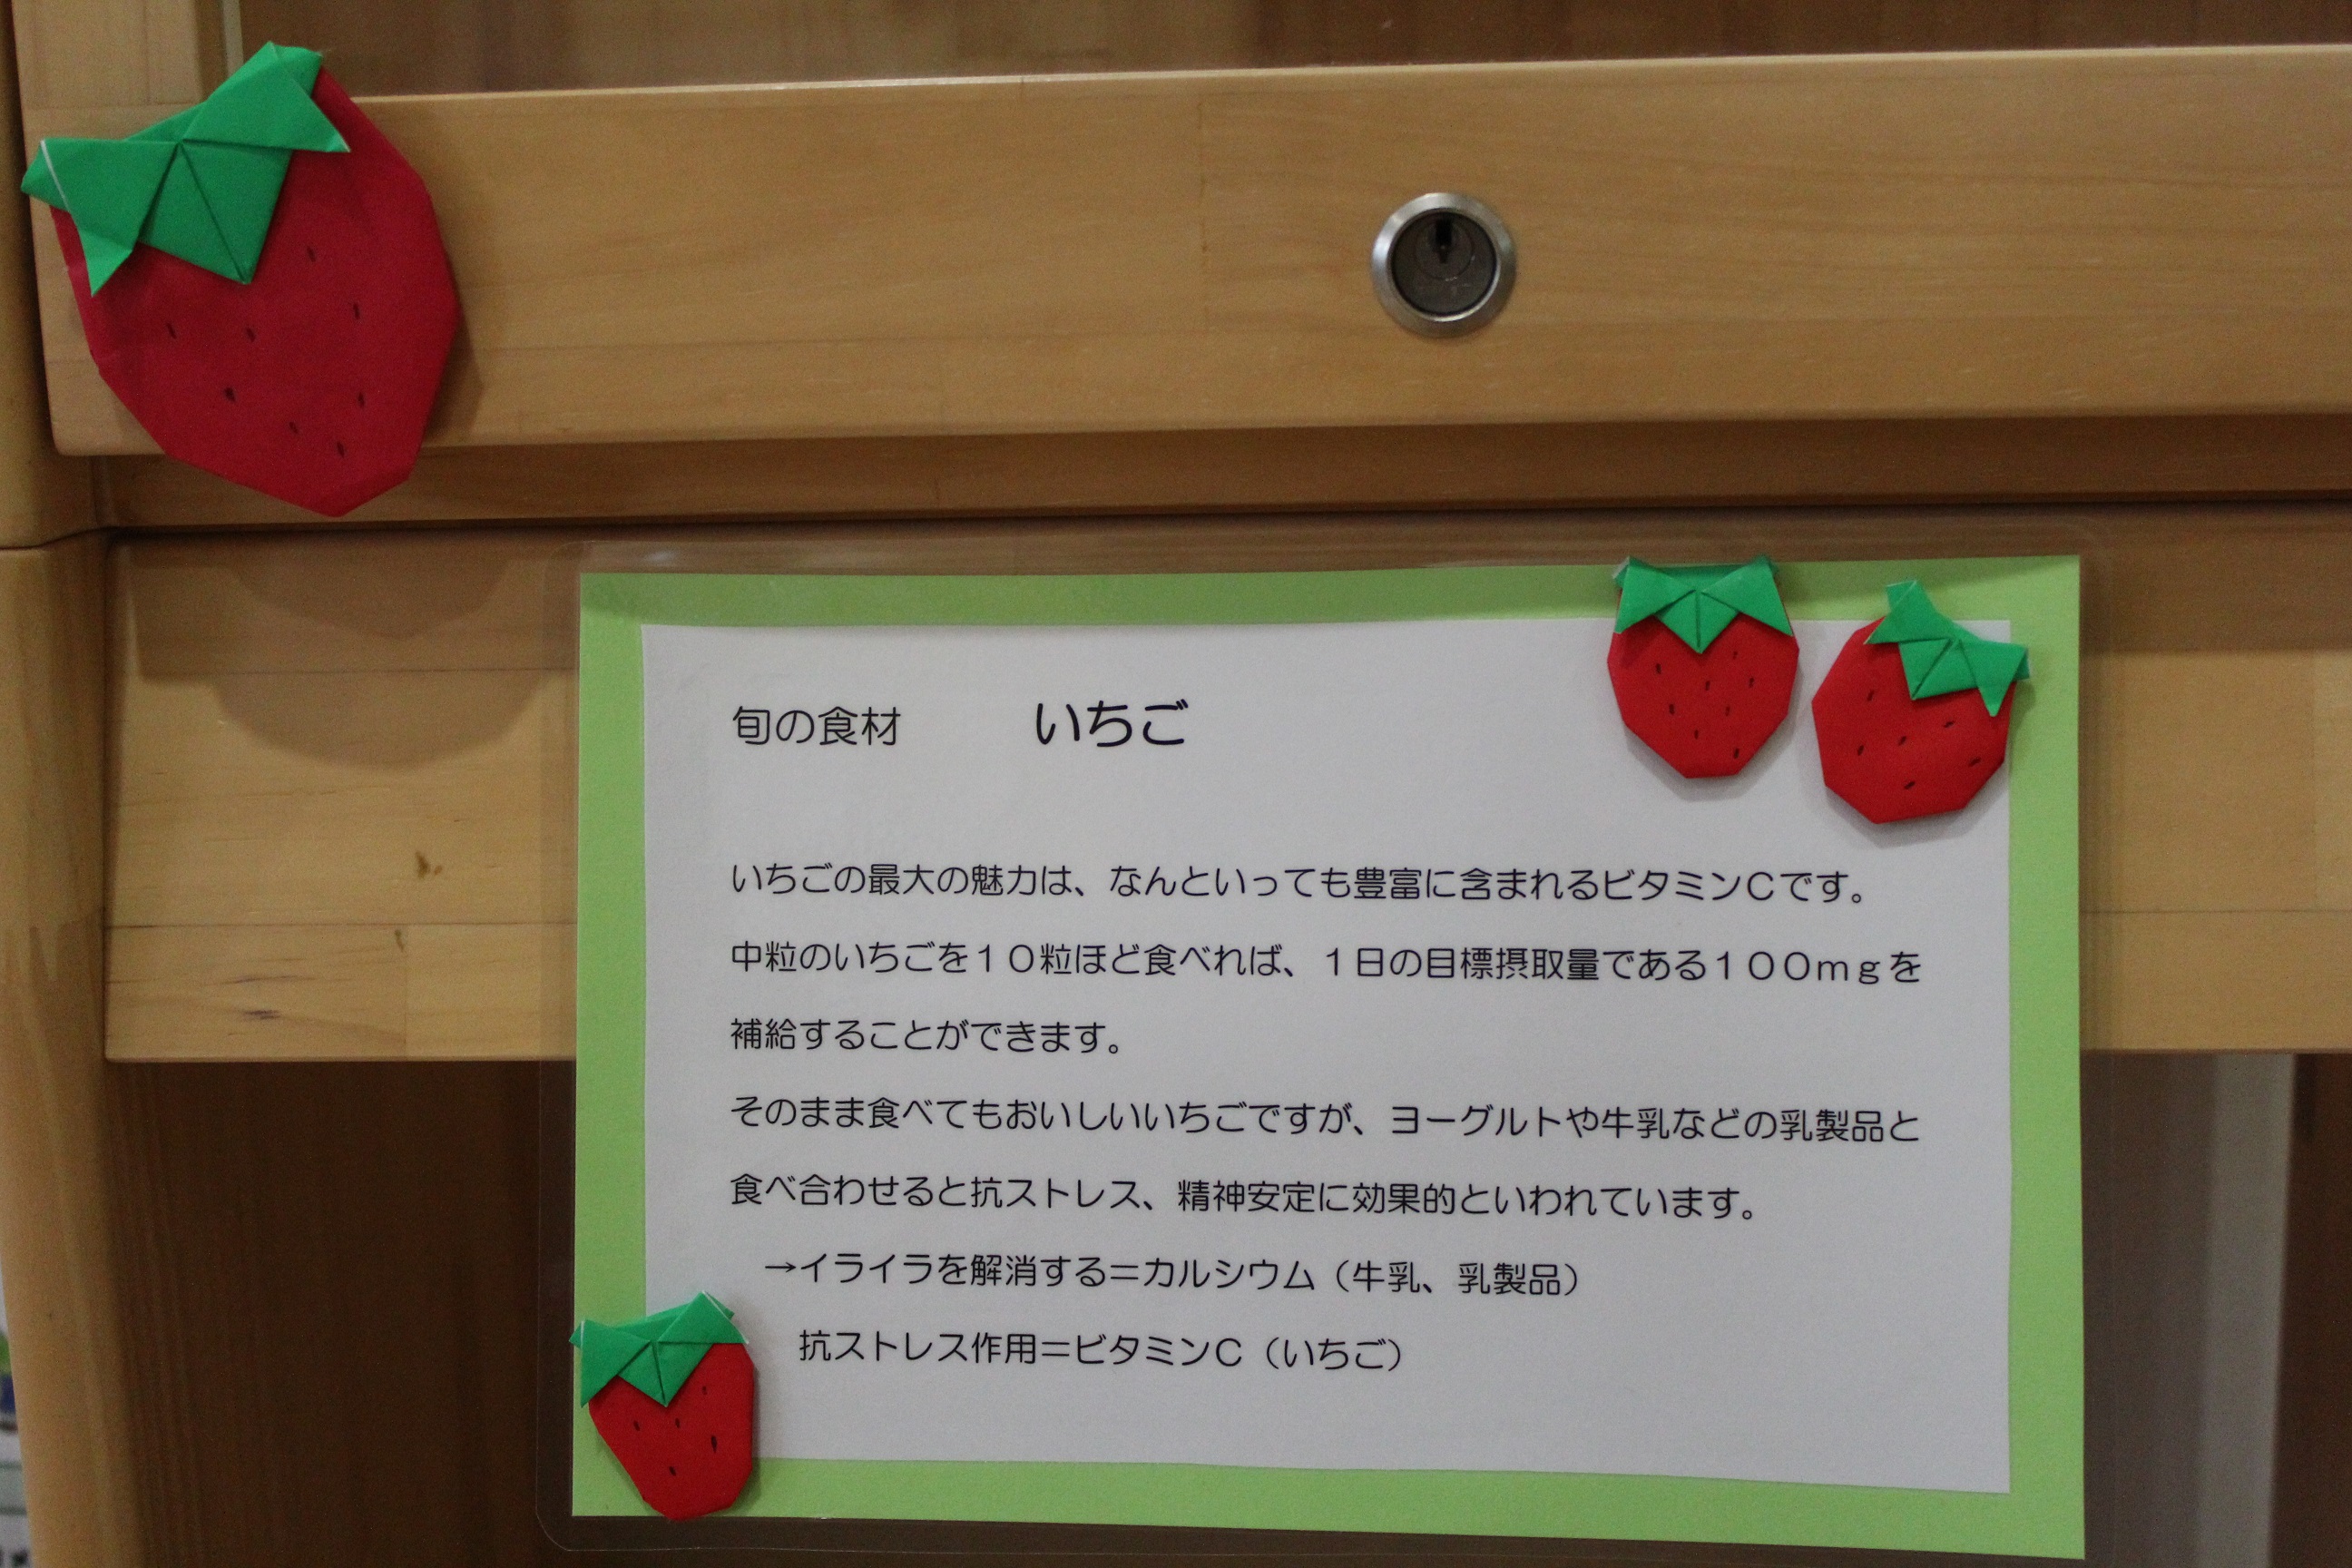 旬の食材　　いちご
いちごの最大の魅力は、なんといっても豊富に含まれるビタミンCです。
中粒のいちごを１０粒ほど食べれば、１日の目標摂取量である１００ｍｇを
補給することができます。
そのまま食べてもおいしいいちごですが、ヨーグルトや牛乳などの乳製品と
食べ合わせると抗ストレス、精神安定に効果的といわれています。
→イライラを解消する＝カルシウム（牛乳、乳製品）
抗ストレス作用＝ビタミンC（いちご）